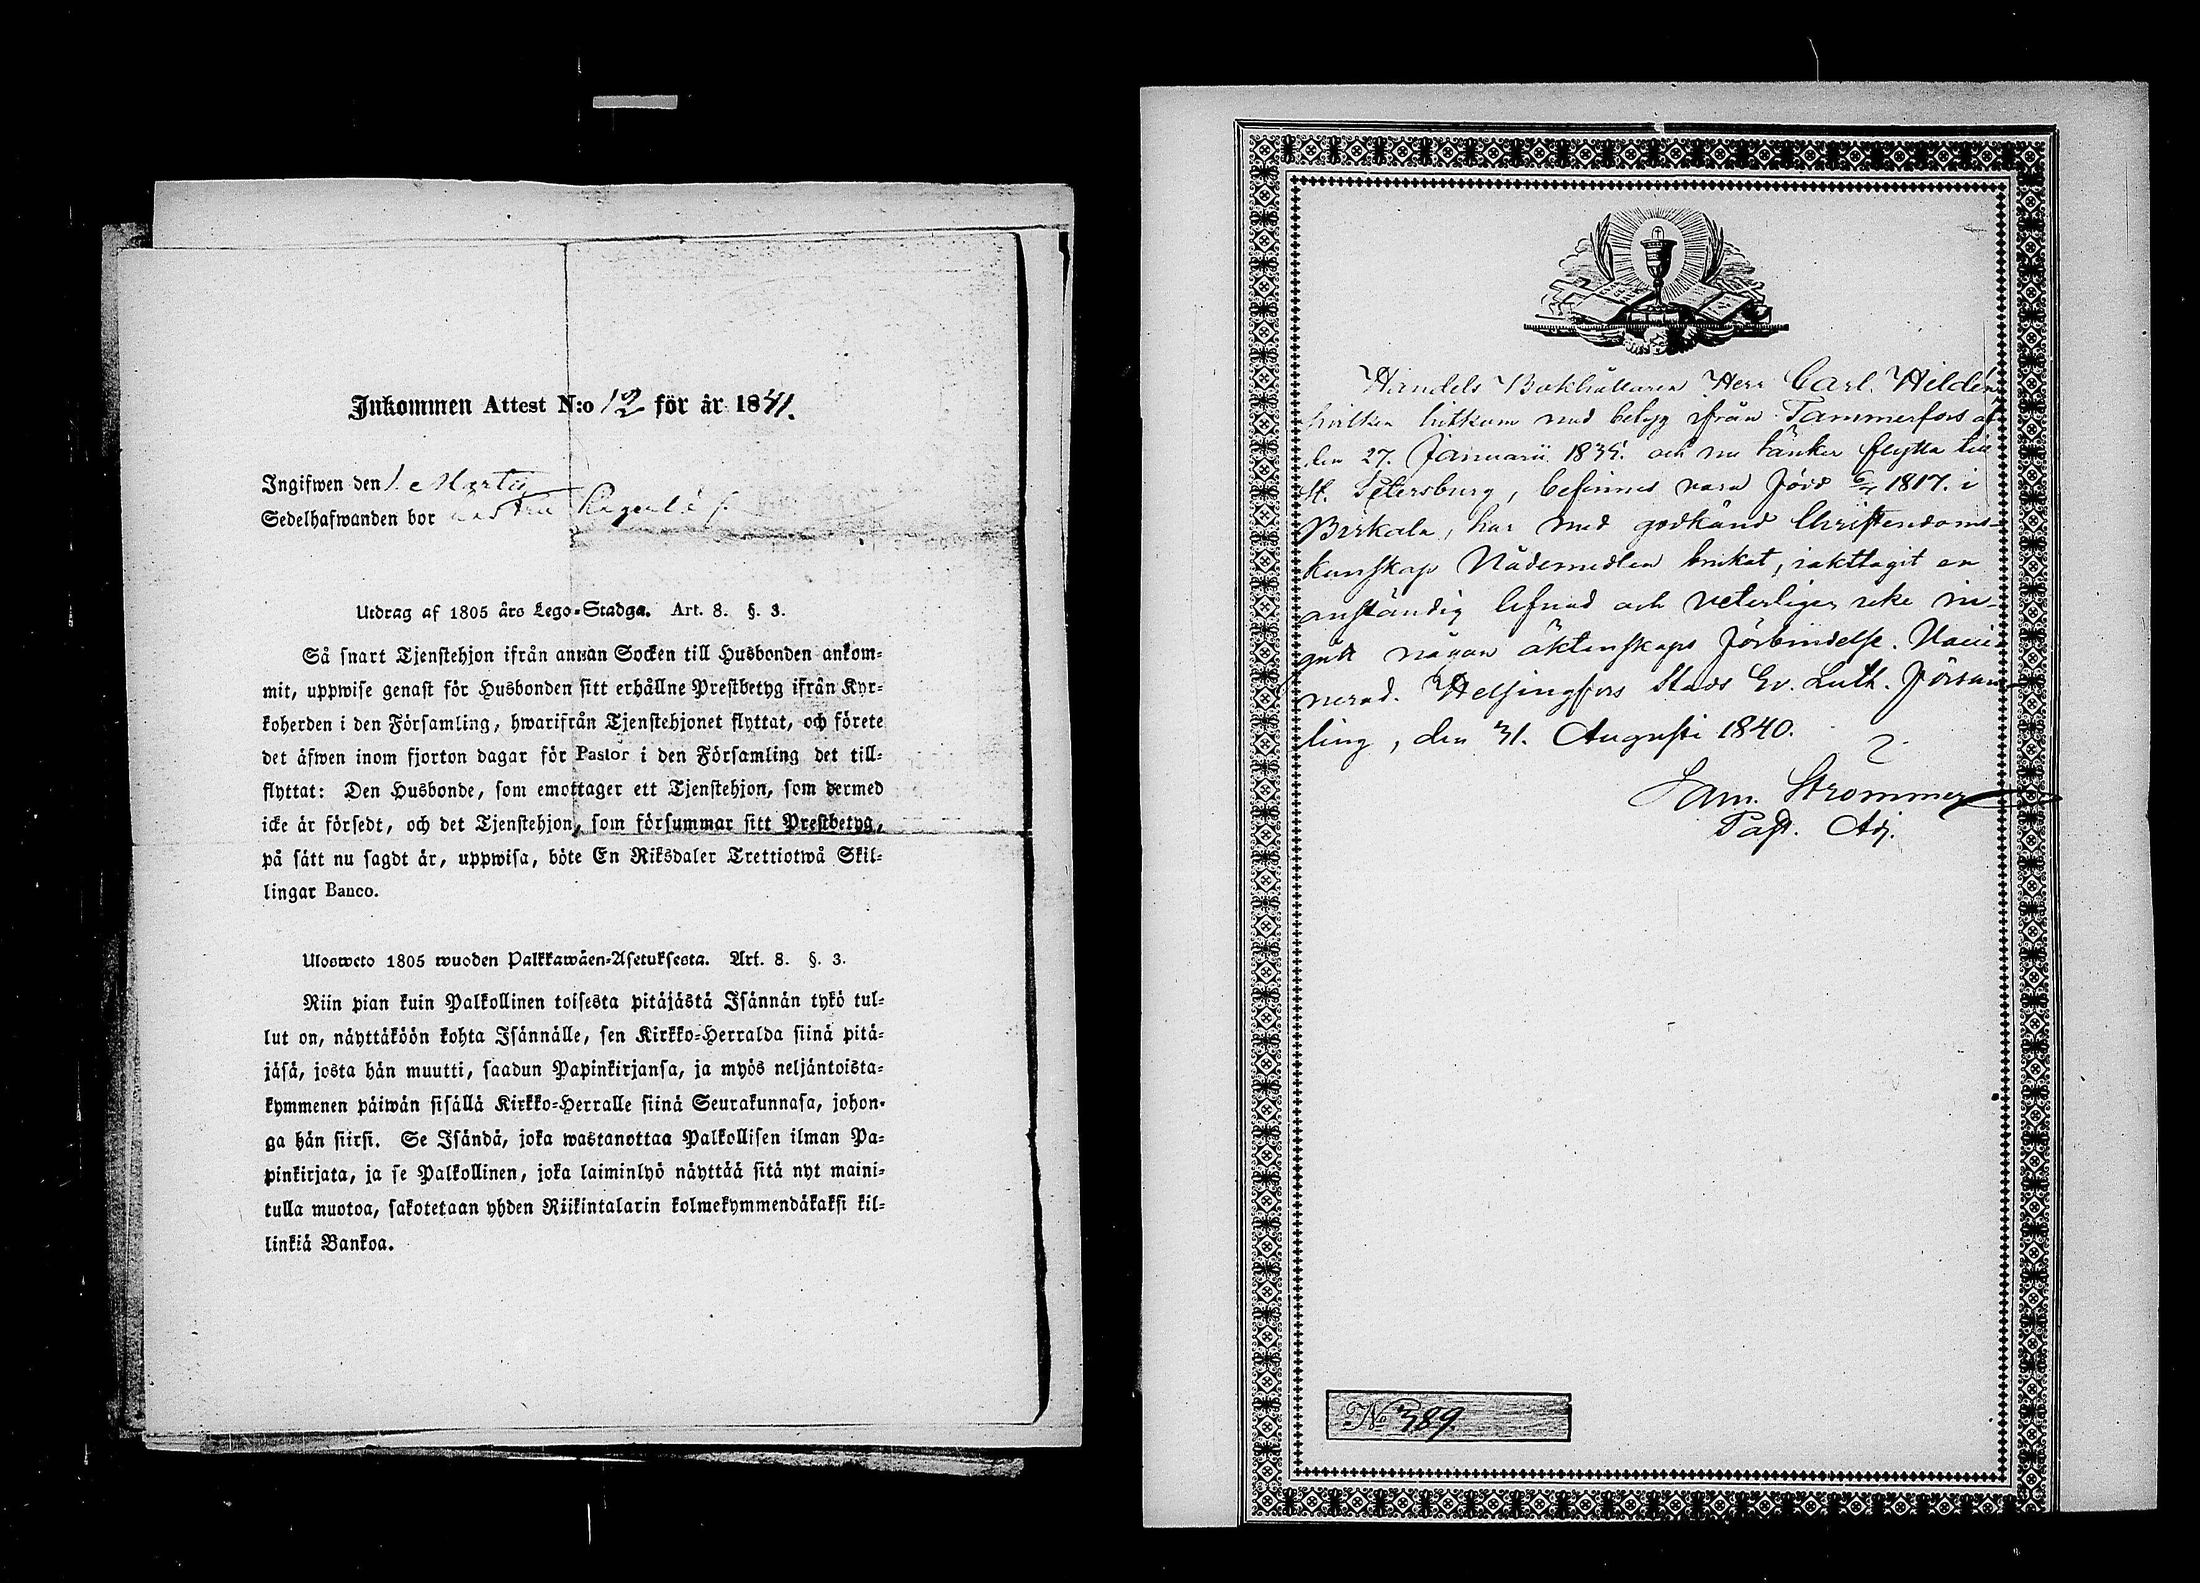 Inkommen Attest N:o 12 för år 1841.
Ingifwen den 1 Martij
Sedelhafwanden bor
Utdrag af 1805 års Lego-Stadga. Art. 8. §. 3.
Så snart Tjenstehjon ifrån annan Socken till Husbonden ankom-
mit, uppwise genast för Husbonden sitt erhållne Prestbetyg ifrån Kyr-
koherden i den Församling, hwarifrån Tjenstehjonet flyttat, och förete
det äfwen inom fjorton dagar för Pastor i den Församling det till-
flyttat: Den Husbonde, som emottager ett Tjenstehjon, som dermed
icke är försedt, och det Tjenstehjon, som försummar sitt Prestbetyg,
på sätt nu sagdt är, uppwisa, böte En Riksdaler Trettiotwå Skil-
lingar Banco.
Ulosweto 1805 wuoden Palkkawäen-Asetuksesta. Art. 8. §. 3.
Niin pian kuin Palkollinen toisesta pitäjästä Isännän tykö tul-
lut on, näyttäköön kohta Isännälle, sen Kirkko-Herralda siinä pitä-
jäsä, josta hän muutti, saadun Papinkirjansa, ja myös neljäntoista-
kymmenen päiwän sisällä Kirkko-Herralle siinä Seurakunnasa, johon-
ga hän siirsi. Se Isändä, joka wastanottaa Palkollisen ilman Pa-
pinkirjata, ja se Palkollinen, joka laiminlyö näyttää sitä nyt maini-
tulla muotoa, sakotetaan yhden Riikintalarin kolmekymmendäkaksi kil-
linkiä Bankoa.
Handels Bokhållaren Herr Carl Hildén
hvilken hitkom med betyg ifrån Tammerfors af
den 27. Januarii 1835. och nu tänker flytta till
St. Petersburg, befinnes vara född 1817. i
Birkala, har med godkänd Christendoms-
kunskap Nådemedlen brukat, iakttagit en
anständig lefnad och veterligen icke in-
gått någon äktenskaps förbindelse. Vacci-
nerad. Helsingfors Stads Ev. Luth. Försam-
ling, den 31. Augusti 1840.
Sam. Strömmer
Past. Adj.
No 389.